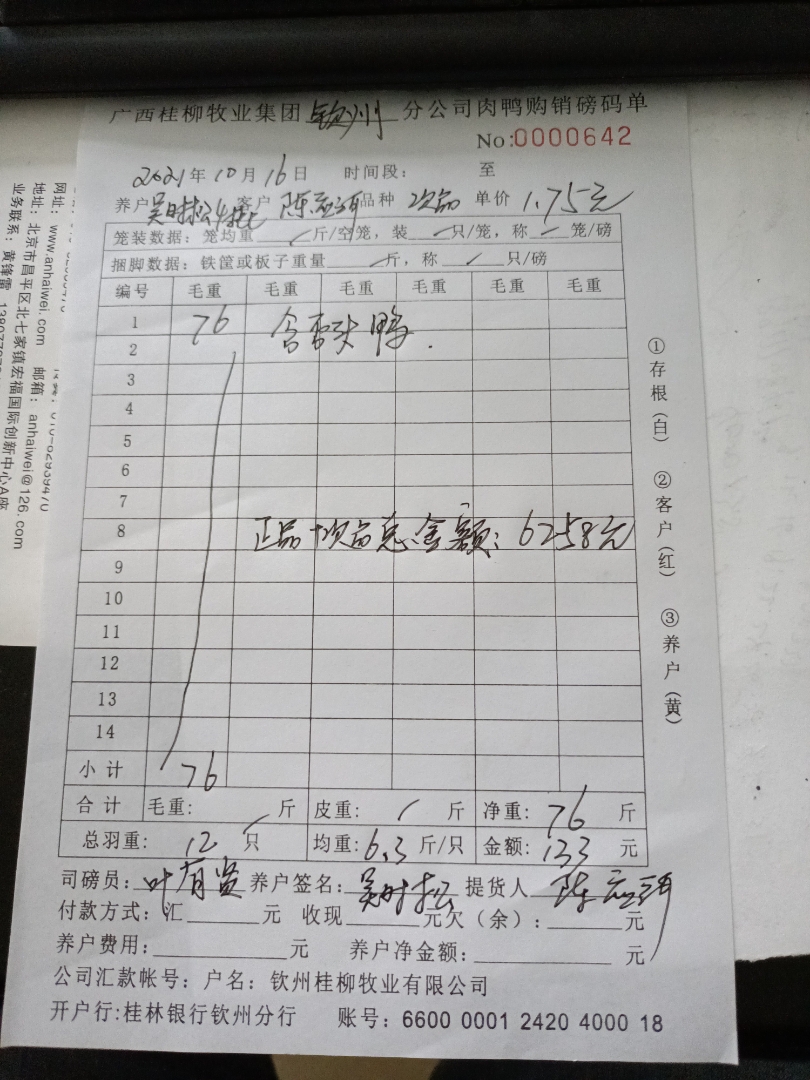 广西桂柳牧业集团 钦州 分公司肉鸭购销磅码单
No:0000642
2021年10月16日 时间段: 至
养户 吴时松 客户 陈 品种 次品 单价 1.75元
笼装数据: 笼均重 / 斤/空笼, 装 / 只/笼, 称 / 笼/磅
捆脚数据: 铁筐或板子重量 / 斤, 称 / 只/磅
编号 毛重 毛重 毛重 毛重 毛重 毛重
1 76 含 头鸭.
2
3
4
5
6
7
8 正品+次品总金额: 6258元
9
10
11
12
13
14
小计 76
合计 毛重: / 斤 皮重: / 斤 净重: 76 斤
总羽重: 12 只 均重: 6.3 斤/只 金额: 133 元
司磅员: 叶有贤 养户签名: 吴时松 提货人 陈
付款方式: 汇 元 收现 元欠(余): 元
养户费用: 元 养户净金额: 元
公司汇款帐号: 户名: 钦州桂柳牧业有限公司
开户行:桂林银行钦州分行 账号: 6600 0001 2420 4000 18
①存根(白) ②客户(红) ③养户(黄)
网址: www.anhaiwei.com 邮箱: anhaiwei@126.com
地址: 北京市昌平区北七家镇宏福国际创新中心A座
业务联系: 黄锋雷